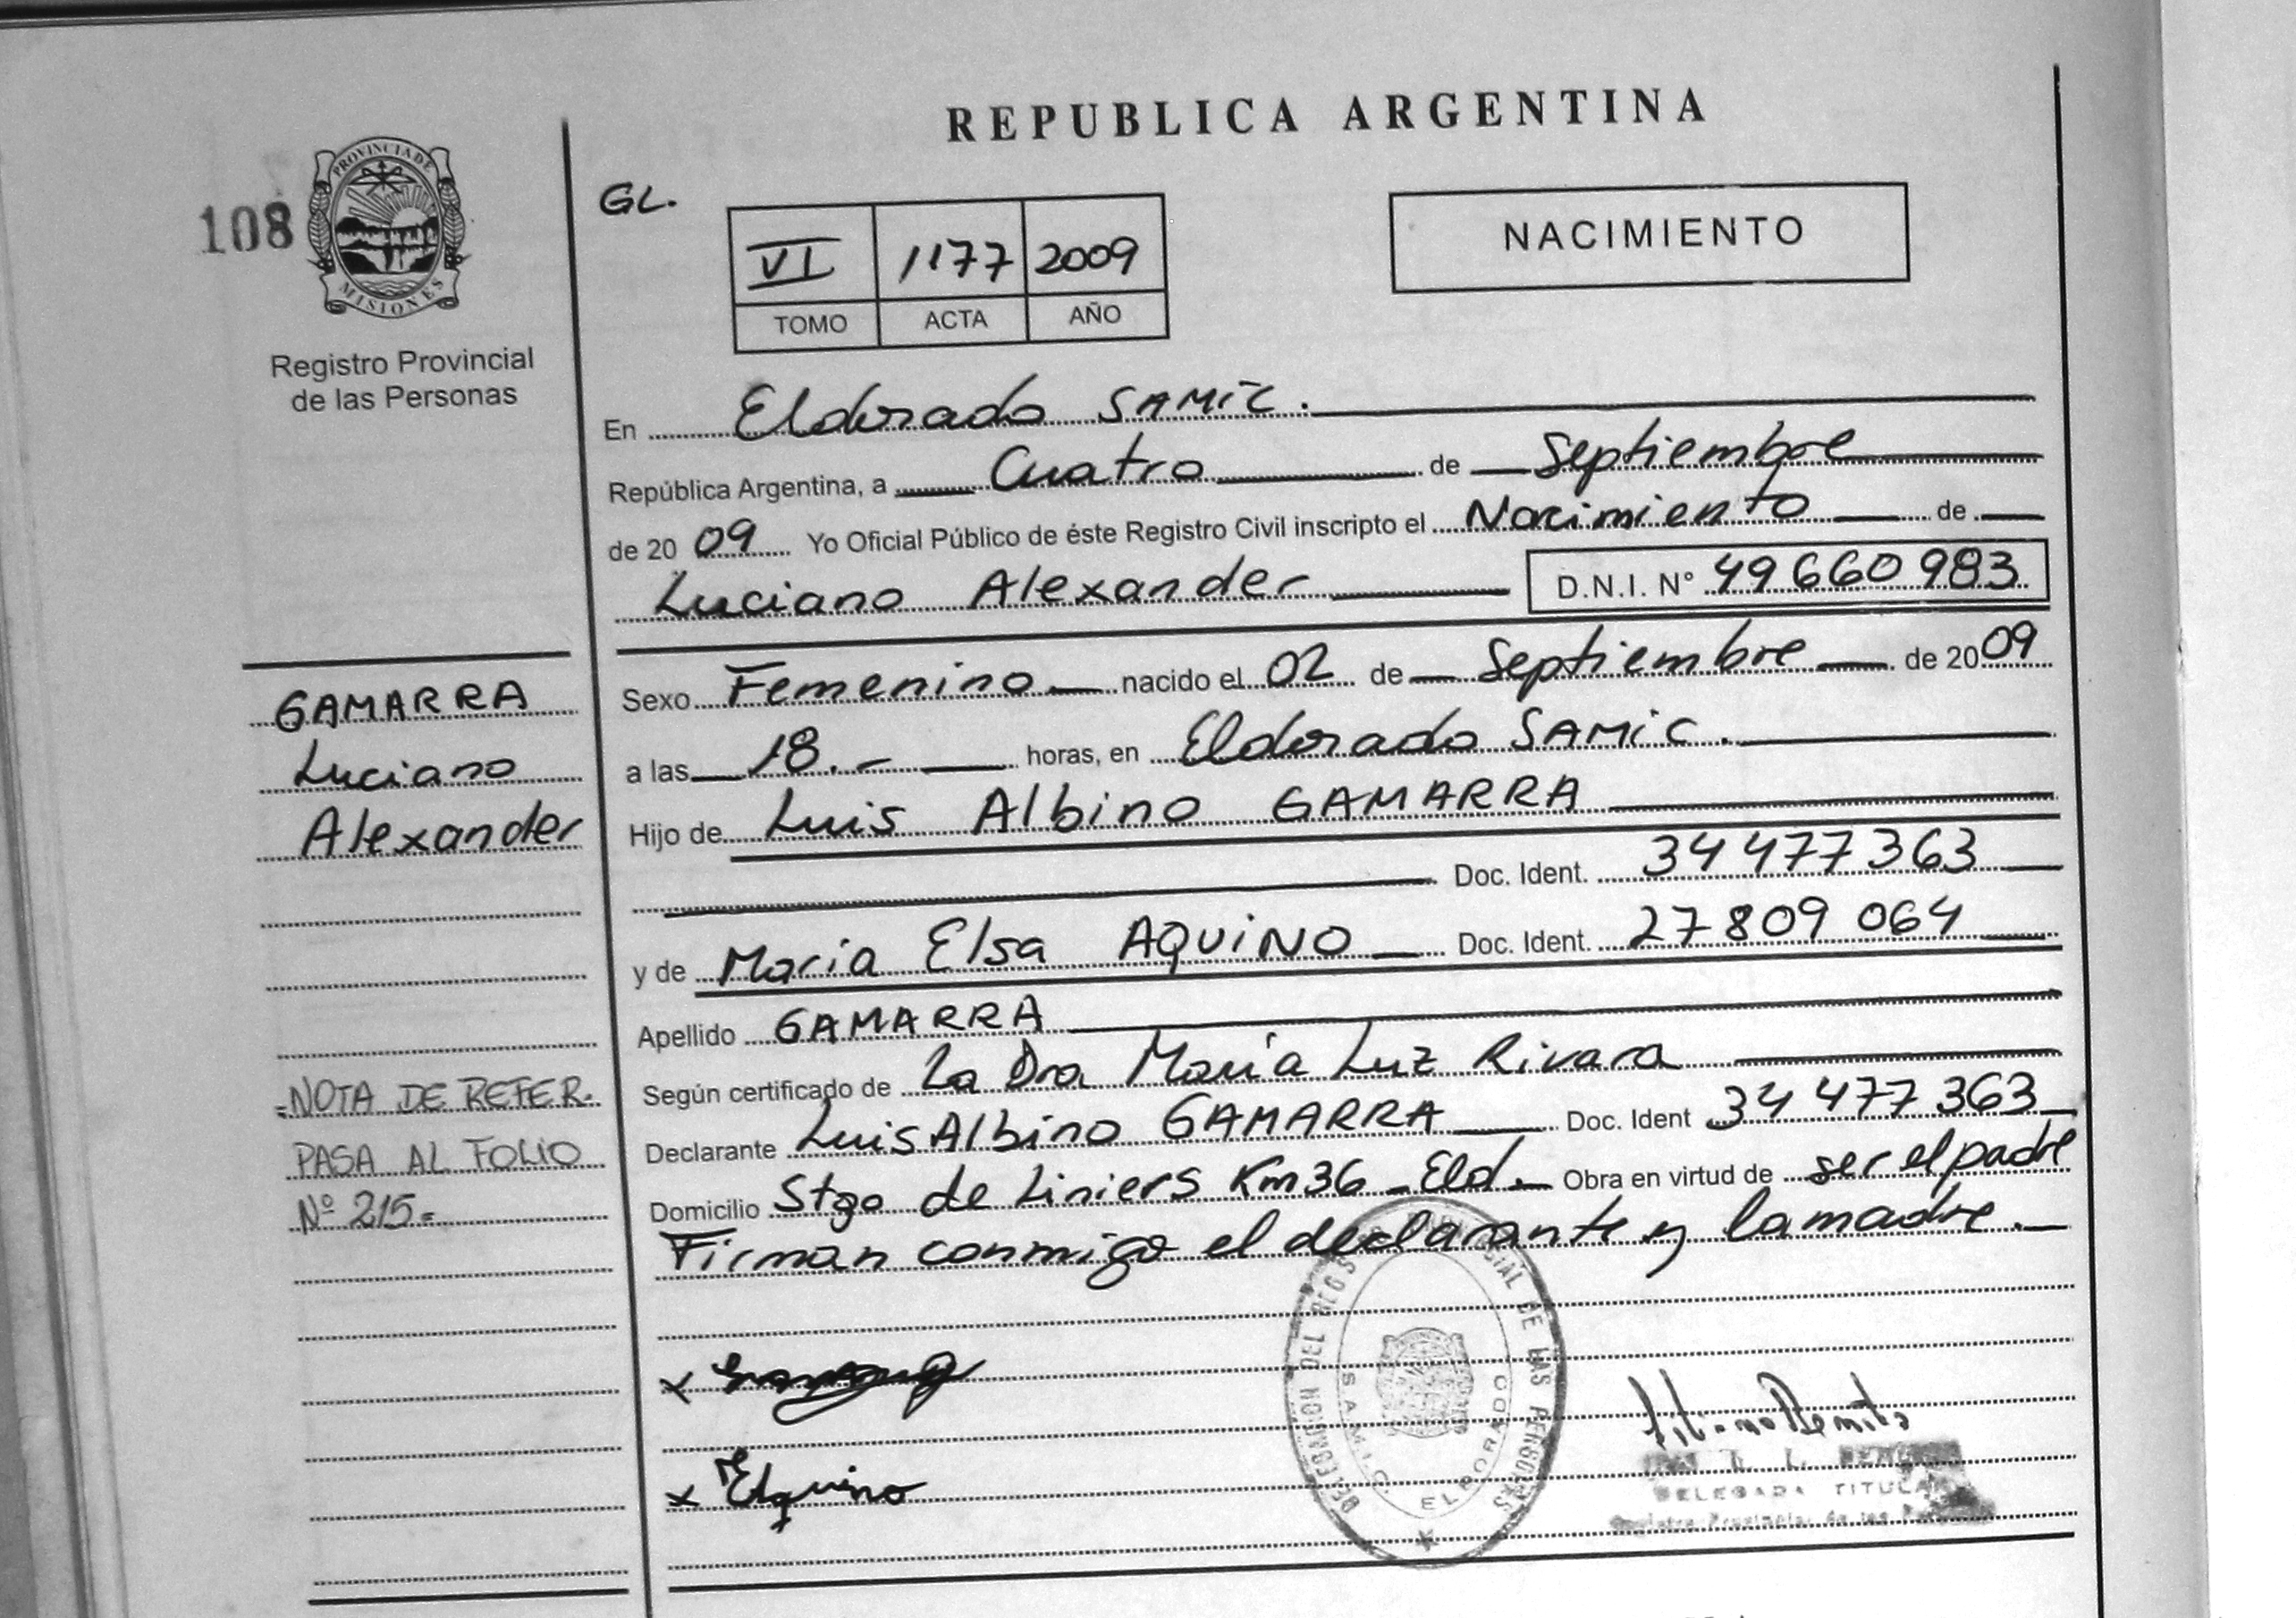 REPUBLICA ARGENTINA
108
PROVINCIA DE
MISIONES
Registro Provincial
de las Personas
GL.
VI 1177 2009
TOMO ACTA AÑO
NACIMIENTO
En Eldorado SAMIC.
República Argentina, a Cuatro de Septiembre
de 2009 Yo Oficial Público de éste Registro Civil inscripto el Nacimiento de
Luciano Alexander D.N.I. Nº 49660983
Sexo Femenino nacido el 02 de Septiembre de 2009
a las 18.- horas, en Eldorado SAMIC.
Hijo de Luis Albino GAMARRA
Doc. Ident. 34477363
y de Maria Elsa AQUINO Doc. Ident. 27809064
Apellido GAMARRA
Según certificado de La Dra María Luz Rivara
Declarante Luis Albino GAMARRA Doc. Ident 34477363
Domicilio Stgo de Liniers Km36 - Eld. Obra en virtud de ser el padre
Firman conmigo el declarante y la madre.
GAMARRA
Luciano
Alexander
=NOTA DE REFER.
PASA AL FOLIO
Nº 215=
x
x EAquino
DELEGACION DEL REGISTRO PROVINCIAL DE LAS PERSONAS
S.A.M.I.C. ELDORADO
DELEGADA TITULAR
Registro Provincial de las